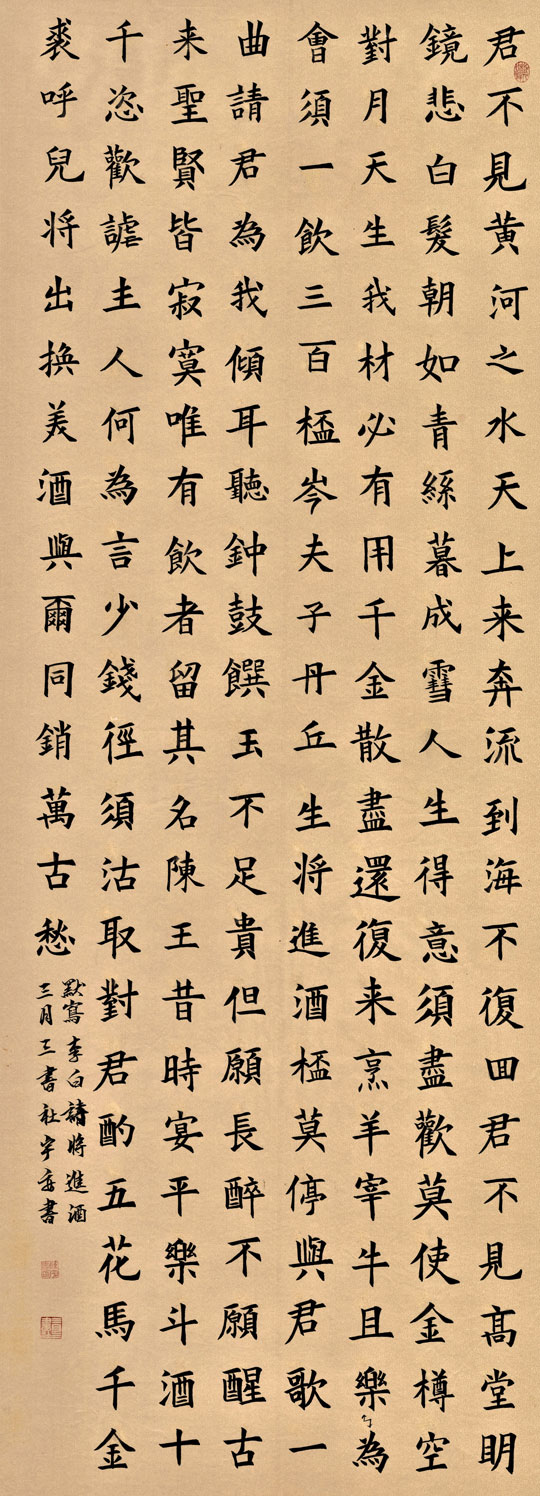 君不見黄河之水天上来奔流到海不復囬君不見高堂明
鏡悲白髮朝如青絲暮成雪人生得意須盡歡莫使金樽空
對月天生我材必有用千金散盡還復来烹羊宰牛且樂為
會須一飲三百桮岑夫子丹丘生将進酒桮莫停與君歌一
曲請君為我傾耳聽鈡鼓饌玉不足貴但願長醉不願醒古
来聖賢皆寂寞唯有飲者留其名陳王昔時宴平樂斗酒十
千恣歡謔主人何為言少錢徑須沽取對君酌五花馬千金
裘呼兒将出換美酒與爾同銷萬古愁
默寫李白詩将進酒
三月三書社宇書